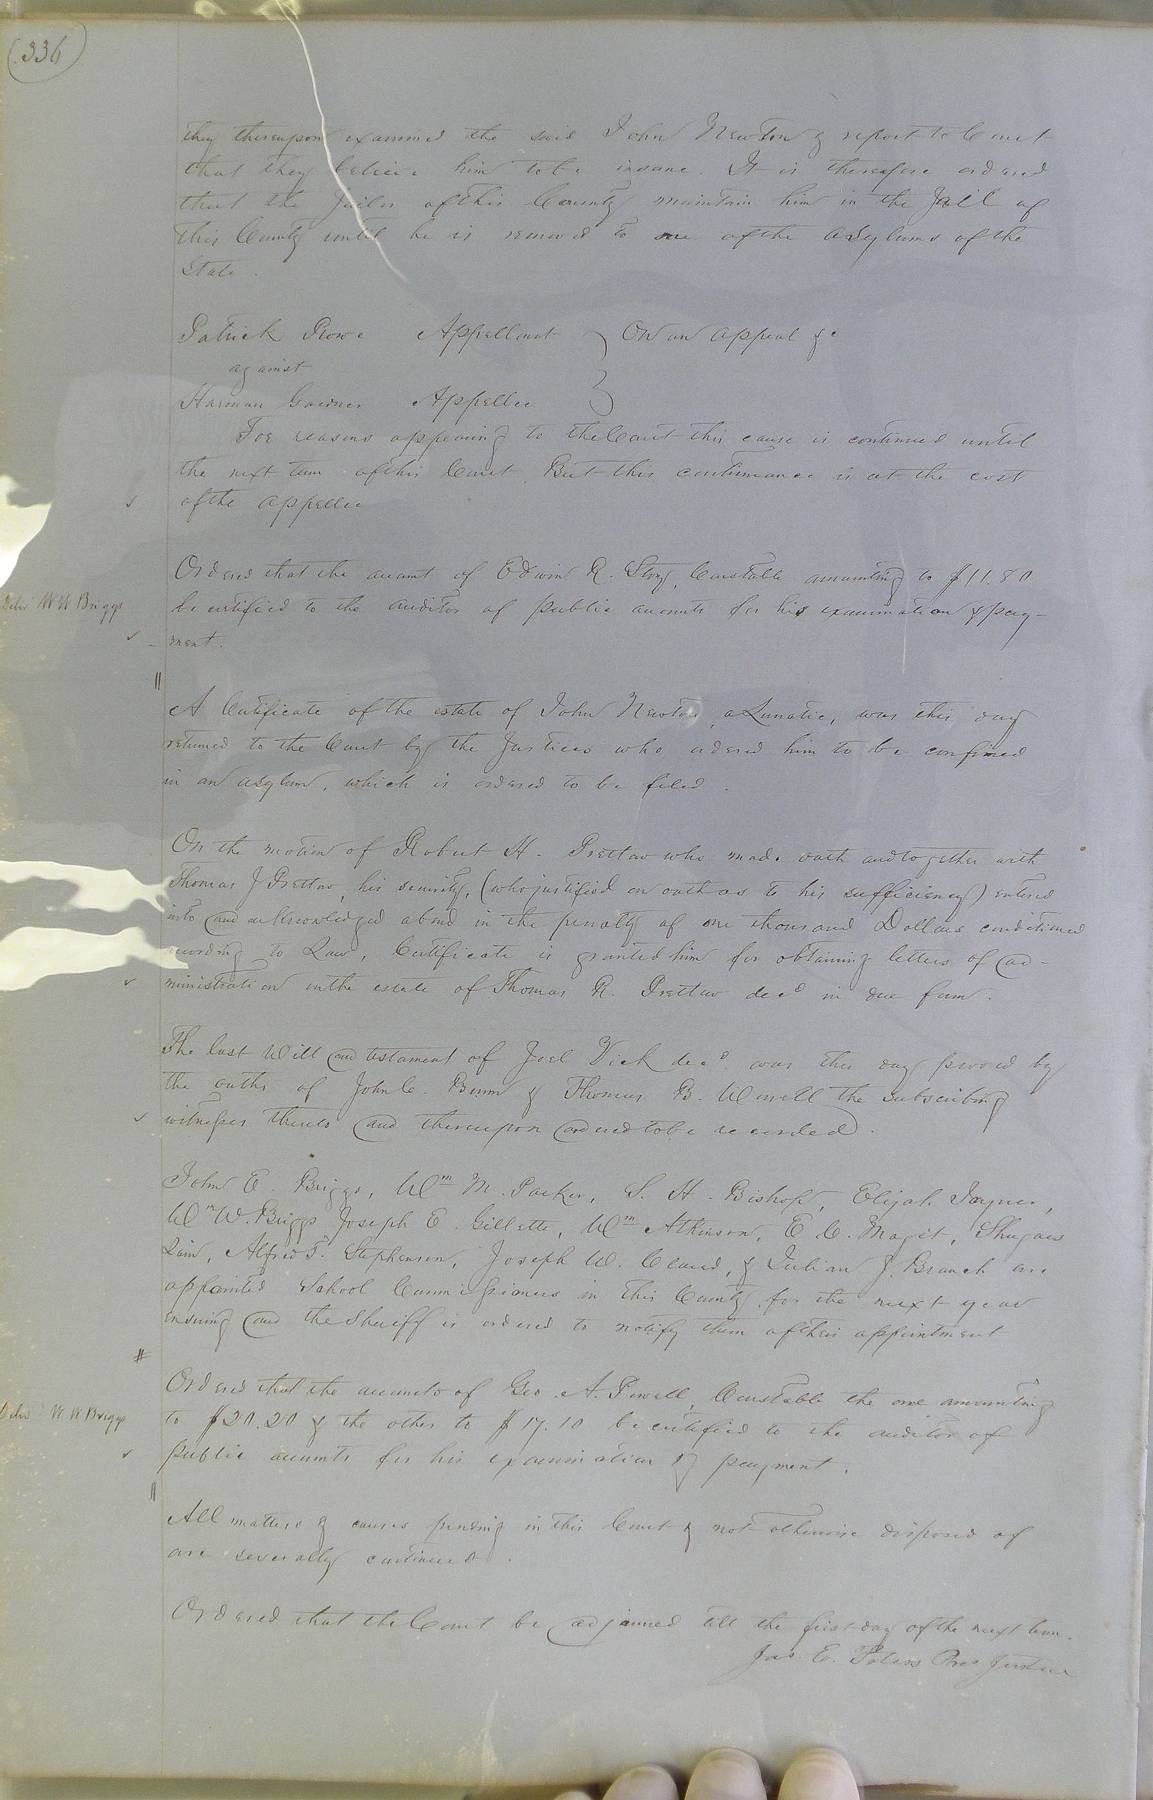 336
they thereupon examined the said John Newton & report to Court
that they believe him to be insane. It is therefore ordered
that the Jailor of this County maintain him in the Jail of
this County until he is removed to one of the asylums of the
State.
Patrick Rowe Appellant } On an appeal &c
against
Harman Appellee }
For reasons appearing to the Court this cause is continued until
the next term of this Court. But this continuance is at the cost
of the appellee
Ordered that the account of Edwin R. Constable amounting to $11.80
W W Briggs
be certified to the auditor of public accounts for his examination & pay-
ment.
A Certificate of the estate of John Newton, a Lunatic, was this day
returned to the Court by the Justices who ordered him to be confined
in an asylum, which is ordered to be filed.
On the motion of Robert H. Pretlow who made oath and together with
Thomas J Pretlow, his security, (who justified on oath as to his sufficiency) entered
into and acknowledged a bond in the penalty of one thousand Dollars conditioned
according to Law, Certificate is granted him for obtaining letters of ad-
ministration on the estate of Thomas R. Pretlow decd in due form.
The last Will and testament of Joel Vick decd. was this day proved by
the oaths of John C. Bunn & Thomas B. the subscribing
witnesses thereto and thereupon ordered to be recorded.
John E. Briggs, Wm M. Parker, S. H. Bishop, Elijah Joyner,
Wm W. Briggs Joseph E. Gillette, Wm Atkinson, E. C. Magit, Shugars
Lain, Alfred T. Stephenson, Joseph W. Claud, & Julian J. Branch are
appointed School Commissioners in this County for the next year
ensuing and the Sheriff is ordered to notify them of their appointment
Ordered that the accounts of Geo. A. Powell, Constable the one amounting
W W Briggs
to $20.20 & the other to $17.10 be certified to the auditor of
public accounts for his examination & payment.
All matters & causes pending in this Court & not otherwise disposed of
are severally continued.
Ordered that the Court be adjourned till the first day of the next term.
Jas. E. Peters Pres Justice